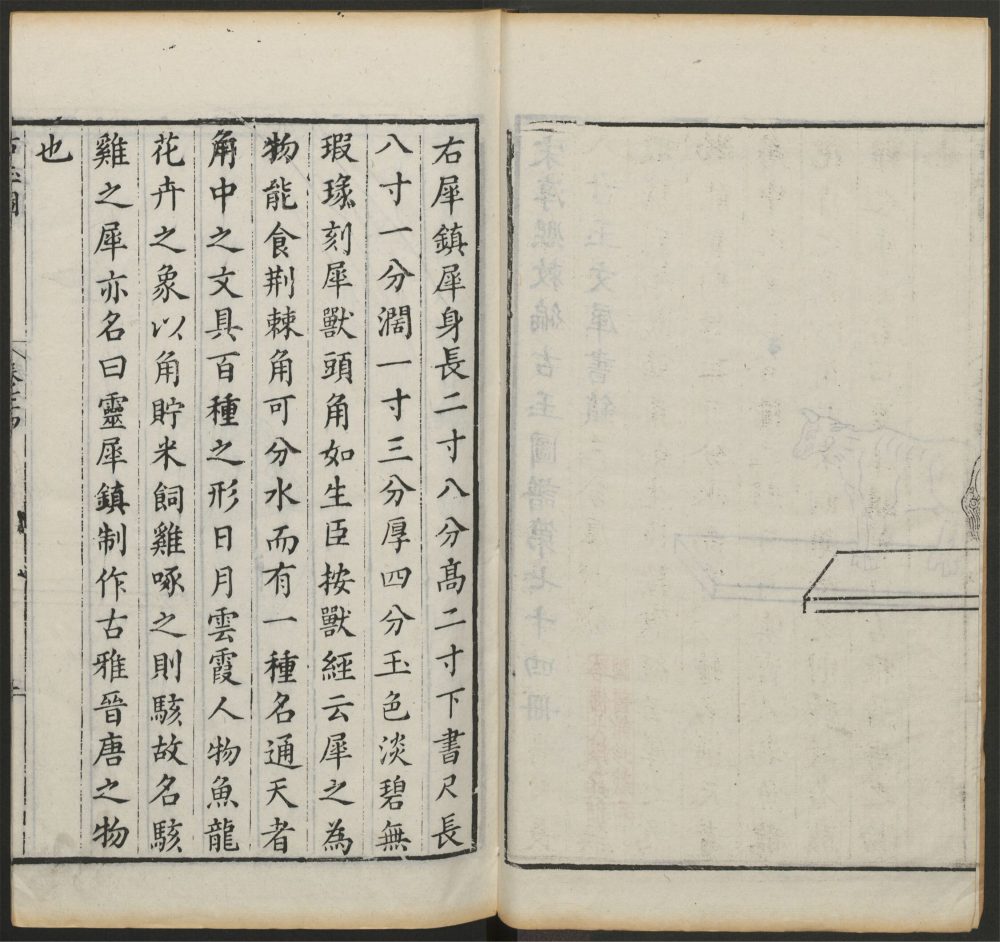 右犀鎮犀身長二寸八分高二寸下書尺長
八寸一分濶一寸三分厚四分玉色淡碧無
瑕瑑刻犀獸頭角如生臣按獸經云犀之為
物能食荆棘角可分水而有一種名通天者
角中之文具百種之形日月雲霞人物魚龍
花卉之象以角貯米飼雞啄之則駭故名駭
雞之犀亦名曰靈犀鎮制作古雅晉唐之物
也